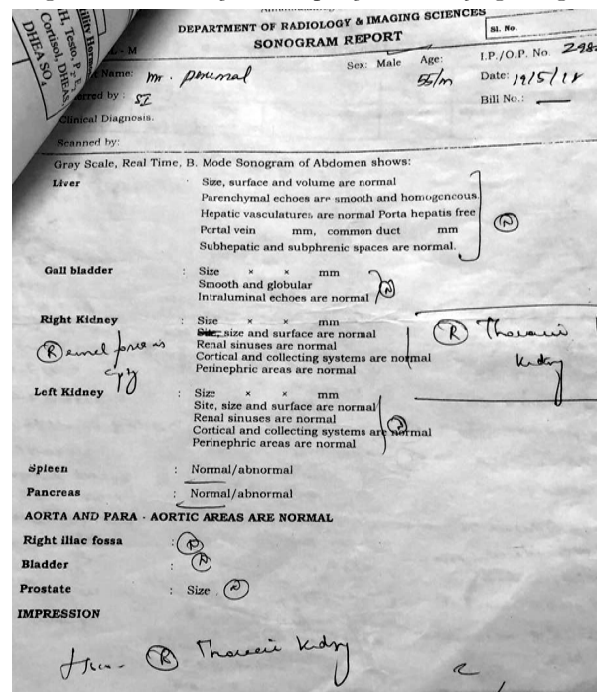 DEPARTMENT OF RADIOLOGY & IMAGING SCIENCES
SONOGRAM REPORT
Sl. No.
H, Testo, P
Cortisol, DHEAS,
DHEA SO4
- M
Name: Mr. Perumal Sex: Male Age: 55/m I.P./O.P. No. 298
Date: 19/5/18
by : SI
Bill No.: —
Clinical Diagnosis.
Scanned by:
Gray Scale, Real Time, B. Mode Sonogram of Abdomen shows:
Liver : Size, surface and volume are normal
Parenchymal echoes are smooth and homogeneous.
Hepatic vasculatures are normal Porta hepatis free
Portal vein mm, common duct mm
Subhepatic and subphrenic spaces are normal.
N
Gall bladder : Size × × mm
Smooth and globular
Intraluminal echoes are normal
N
Right Kidney : Size × × mm
Site, size and surface are normal
Renal sinuses are normal
Cortical and collecting systems are normal
Perinephric areas are normal
R Thoracic
Kidney
R renal fossa is
Left Kidney : Size × × mm
Site, size and surface are normal
Renal sinuses are normal
Cortical and collecting systems are normal
Perinephric areas are normal
N
Spleen : Normal/abnormal
Pancreas : Normal/abnormal
AORTA AND PARA - AORTIC AREAS ARE NORMAL
Right iliac fossa : N
Bladder : N
Prostate : Size . N
IMPRESSION
R Thoracic Kidney